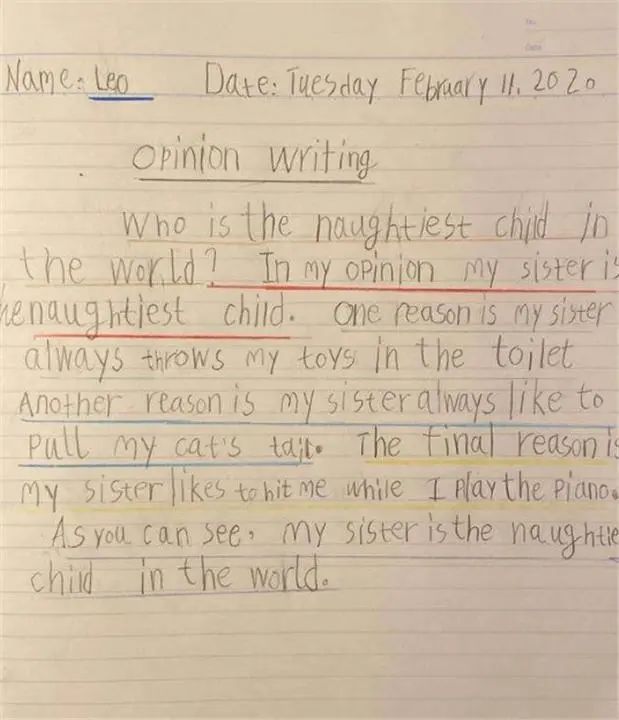 Name: Leo Date: Tuesday February 11, 2020
Opinion Writing
Who is the naughtiest child in
the world? In my opinion my sister is
he naughtiest child. One reason is my sister
always throws my toys in the toilet
Another reason is my sister always like to
pull my cat's tail. The final reason is
my sister likes to hit me while I play the piano.
As you can see, my sister is the naughtie
child in the world.